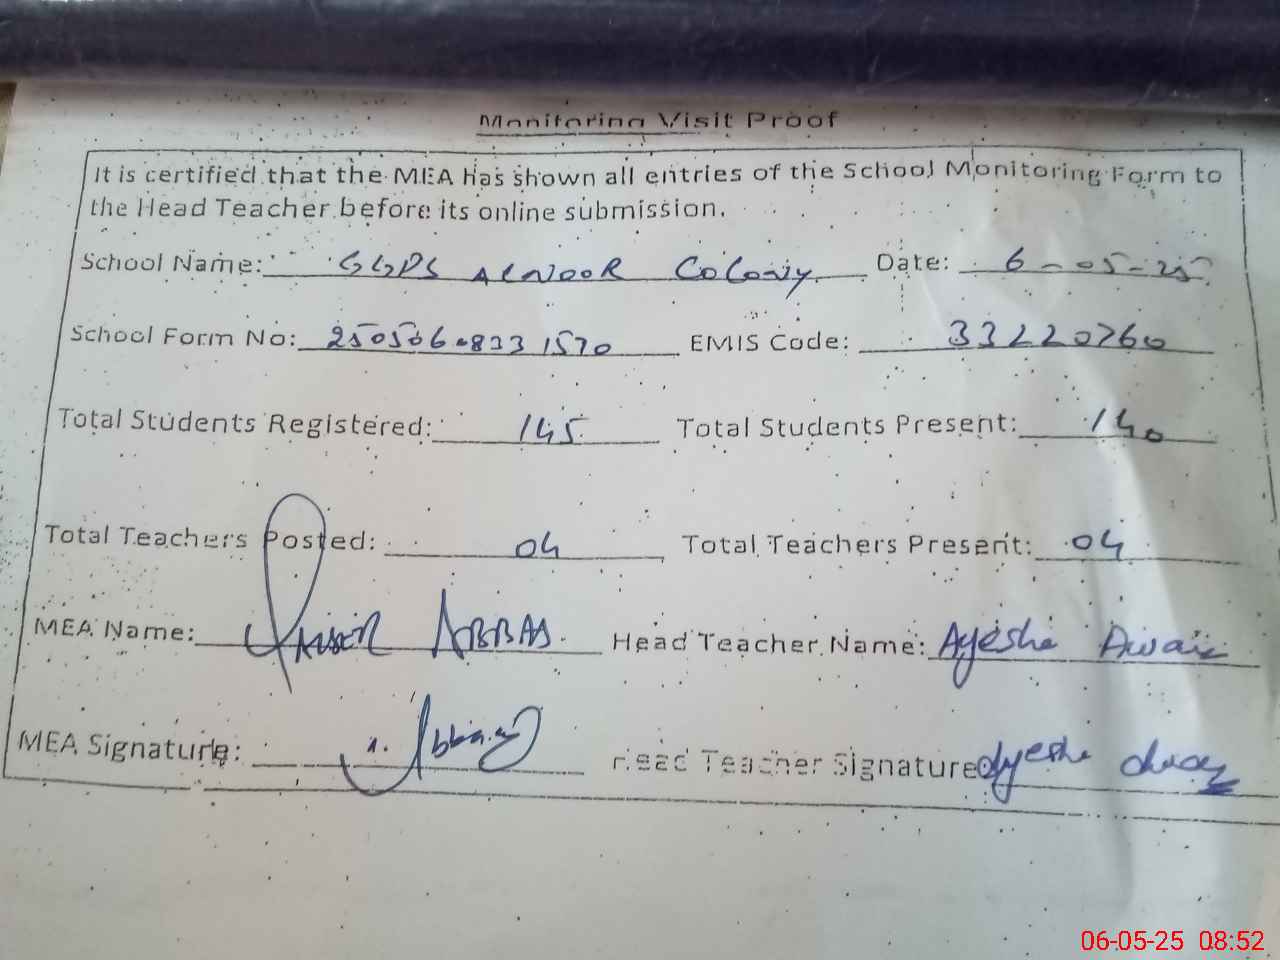 Monitoring Visit Proof
It is certified that the MEA has shown all entries of the School Monitoring Form to
the Head Teacher before its online submission.
School Name: GGPS ALNOOR COLONY Date: 6-05-25
School Form No: 25050608331570 EMIS Code: 33220760
Total Students Registered: 145 Total Students Present: 140
Total Teachers Posted: 04 Total Teachers Present: 04
MEA Name: ABBAS Head Teacher Name: Ayesha
MEA Signature: Head Teacher Signature Ayesha
06-05-25 08:52